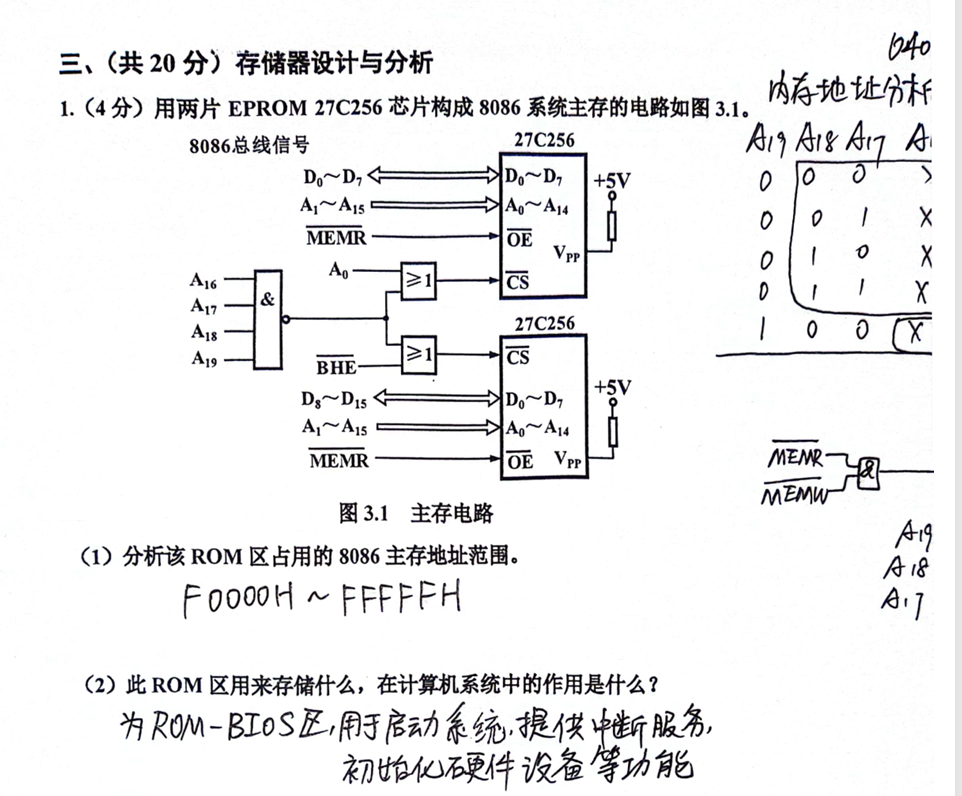 三、（共 20 分）存储器设计与分析
040
内存地址分析
1.（4 分）用两片 EPROM 27C256 芯片构成 8086 系统主存的电路如图 3.1。
8086总线信号
27C256
D₀～D₇
D₀～D₇
+5V
A₁～A₁₅
A₀～A₁₄
M̅E̅M̅R̅
O̅E̅
V_PP
A₀
≥1
C̅S̅
A₁₆
A₁₇
A₁₈
A₁₉
&
27C256
≥1
C̅S̅
B̅H̅E̅
D₈～D₁₅
D₀～D₇
+5V
A₁～A₁₅
A₀～A₁₄
M̅E̅M̅R̅
O̅E̅
V_PP
图 3.1 主存电路
（1）分析该 ROM 区占用的 8086 主存地址范围。
F0000H ~ FFFFFH
（2）此 ROM 区用来存储什么，在计算机系统中的作用是什么？
为ROM-BIOS区,用于启动系统,提供中断服务,
初始化硬件设备等功能
A19 A18 A17 A
0 0 0
0 0 1 X
0 1 0 X
0 1 1 X
1 0 0 X
M̅E̅M̅R̅
&
M̅E̅M̅W̅
A19
A18
A17